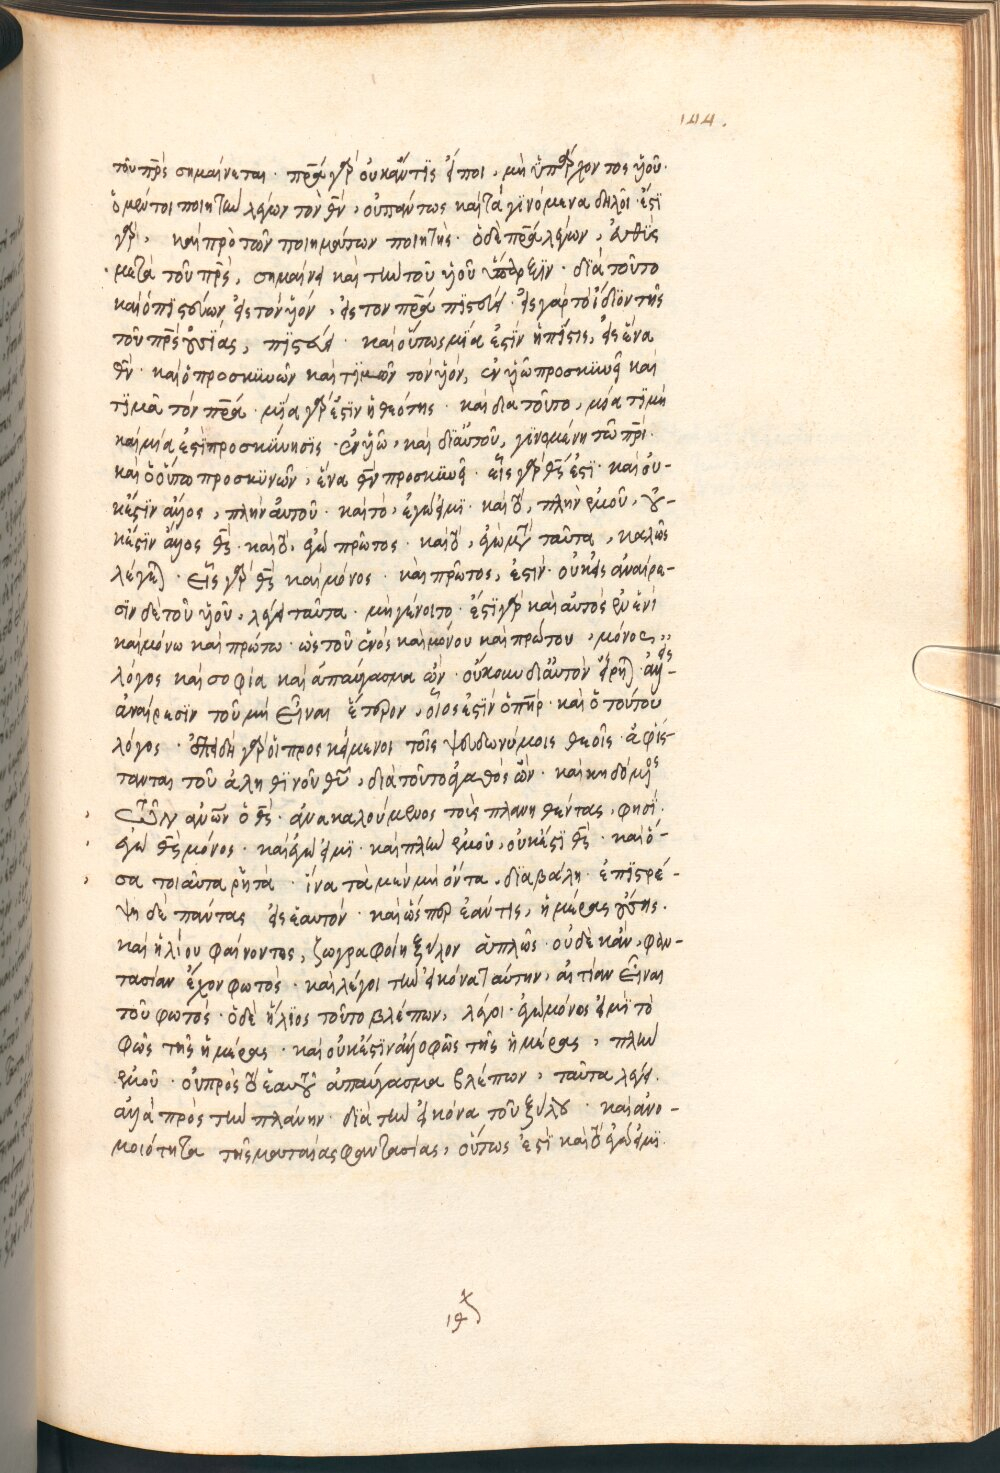 144.
τοῦ πρ̅ς σημαίνεται · πρ̅α γὰρ οὐκ ἄν τις εἴποι, μὴ ὑπάρχοντος υἱοῦ·
ὁ μέντοι ποιητὴν λέγων τὸν θν̅, οὐ πάντως καὶ τὰ γινόμενα δηλοῖ · ἔστι
γὰρ, καὶ πρὸ τῶν ποιημάτων ποιητής · ὁ δὲ πρ̅α λέγων, εὐθὺς
μετὰ τοῦ πρ̅ς, σημαίνει καὶ τὴν τοῦ υἱοῦ ὕπαρξιν · διὰ τοῦτο
καὶ ὁ πιστεύων εἰς τὸν υἱόν, εἰς τὸν πρ̅α πιστεύει · εἰς γὰρ τὸ ἴδιον τῆς
τοῦ πρ̅ς οὐσίας, πιστεύει · καὶ οὕτως μία ἐστὶν ἡ πίστις, εἰς ἕνα
θν̅ · καὶ ὁ προσκυνῶν καὶ τιμῶν τὸν υἱόν, ἐν υἱῷ προσκυνεῖ καὶ
τιμᾷ τὸν πρ̅α · μία γάρ ἐστιν ἡ θεότης · καὶ διὰ τοῦτο, μία τιμὴ
καὶ μία ἐστὶ προσκύνησις · ἐν υἱῷ, καὶ δι' αὐτοῦ, γινομένη τῷ πρ̅ι ·
καὶ ὁ οὕτω προσκυνῶν, ἕνα θν̅ προσκυνεῖ · εἷς γὰρ θς̅ ἐστι · καὶ οὐ-
κ ἔστιν ἄλλος, πλὴν αὐτοῦ · καὶ τὸ, ἐγώ εἰμι · καὶ τὸ, πλὴν ἐμοῦ, οὐ-
κ ἔστιν ἄλλος θς̅ · καὶ τὸ, ἐγὼ πρῶτος · καὶ τὸ, ἐγὼ μετὰ ταῦτα, καλῶς
λέγεται · Εἷς γὰρ θς̅ καὶ μόνος · καὶ πρῶτος, ἐστίν · οὐκ εἰς ἀναίρε-
σιν δὲ τοῦ υἱοῦ, λέγει ταῦτα · μὴ γένοιτο · ἔστι γὰρ καὶ αὐτὸς ἐν ἑνὶ
καὶ μόνω καὶ πρώτω · ὡς τοῦ ἑνὸς καὶ μόνου καὶ πρώτου, μόνος
λόγος καὶ σοφία καὶ ἀπαύγασμα ὤν · οὔκουν δι' αὐτὸν εἴρηται · ἀλλ' εἰς
ἀναίρεσιν τοῦ μὴ εἶναι ἕτερον, οἷός ἐστιν ὁ πη̅ρ · καὶ ὁ τούτου
λόγος · ἐπειδὴ γὰρ οἱ προσκείμενοι τοῖς ψευδωνύμοις θεοῖς · ἀφίσ-
τανται τοῦ ἀληθινοῦ θυ̅, διὰ τοῦτο ἀγαθὸς ὢν · καὶ κηδόμενος
Τῶν αν̅ων ὁ θς̅ · ἀνακαλούμενος τοὺς πλανηθέντας, φησί ·
ἐγὼ θς̅ μόνος · καὶ ἐγώ εἰμι · καὶ πλὴν ἐμοῦ, οὐκ ἔστι θς̅ · καὶ ὅ-
σα τοιαῦτα ῥητὰ · ἵνα τὰ μὲν μὴ ὄντα, διαβάλη · ἐπιστρέ-
ψη δὲ πάντας εἰς ἑαυτόν · καὶ ὥσπερ ἐάν τις, ἡμέρας οὔσης,
καὶ ἡλίου φαίνοντος, ζωγραφοίη ξύλον ἁπλῶς · οὐδὲ κἂν, φαν-
τασίαν ἔχον φωτός · καὶ λέγοι τὴν εἰκόνα ταύτην, αἰτίαν εἶναι
τοῦ φωτός · ὁ δὲ ἥλιος τοῦτο βλέπων, λέγοι · ἐγὼ μόνος εἰμὶ τὸ
φῶς τῆς ἡμέρας · καὶ οὐκ ἔστιν ἄλλο φῶς τῆς ἡμέρας, πλὴν
ἐμοῦ · οὐ πρὸς τὸ ἑαυτοῦ ἀπαύγασμα βλέπων, ταῦτα λέγει ·
ἀλλὰ πρὸς τὴν πλάνην · διὰ τὴν εἰκόνα τοῦ ξύλου · καὶ ἀνο-
μοιότητα τῆς ματαίας φαντασίας, οὕτως ἐστὶ καὶ τὸ ἐγώ εἰμι ·